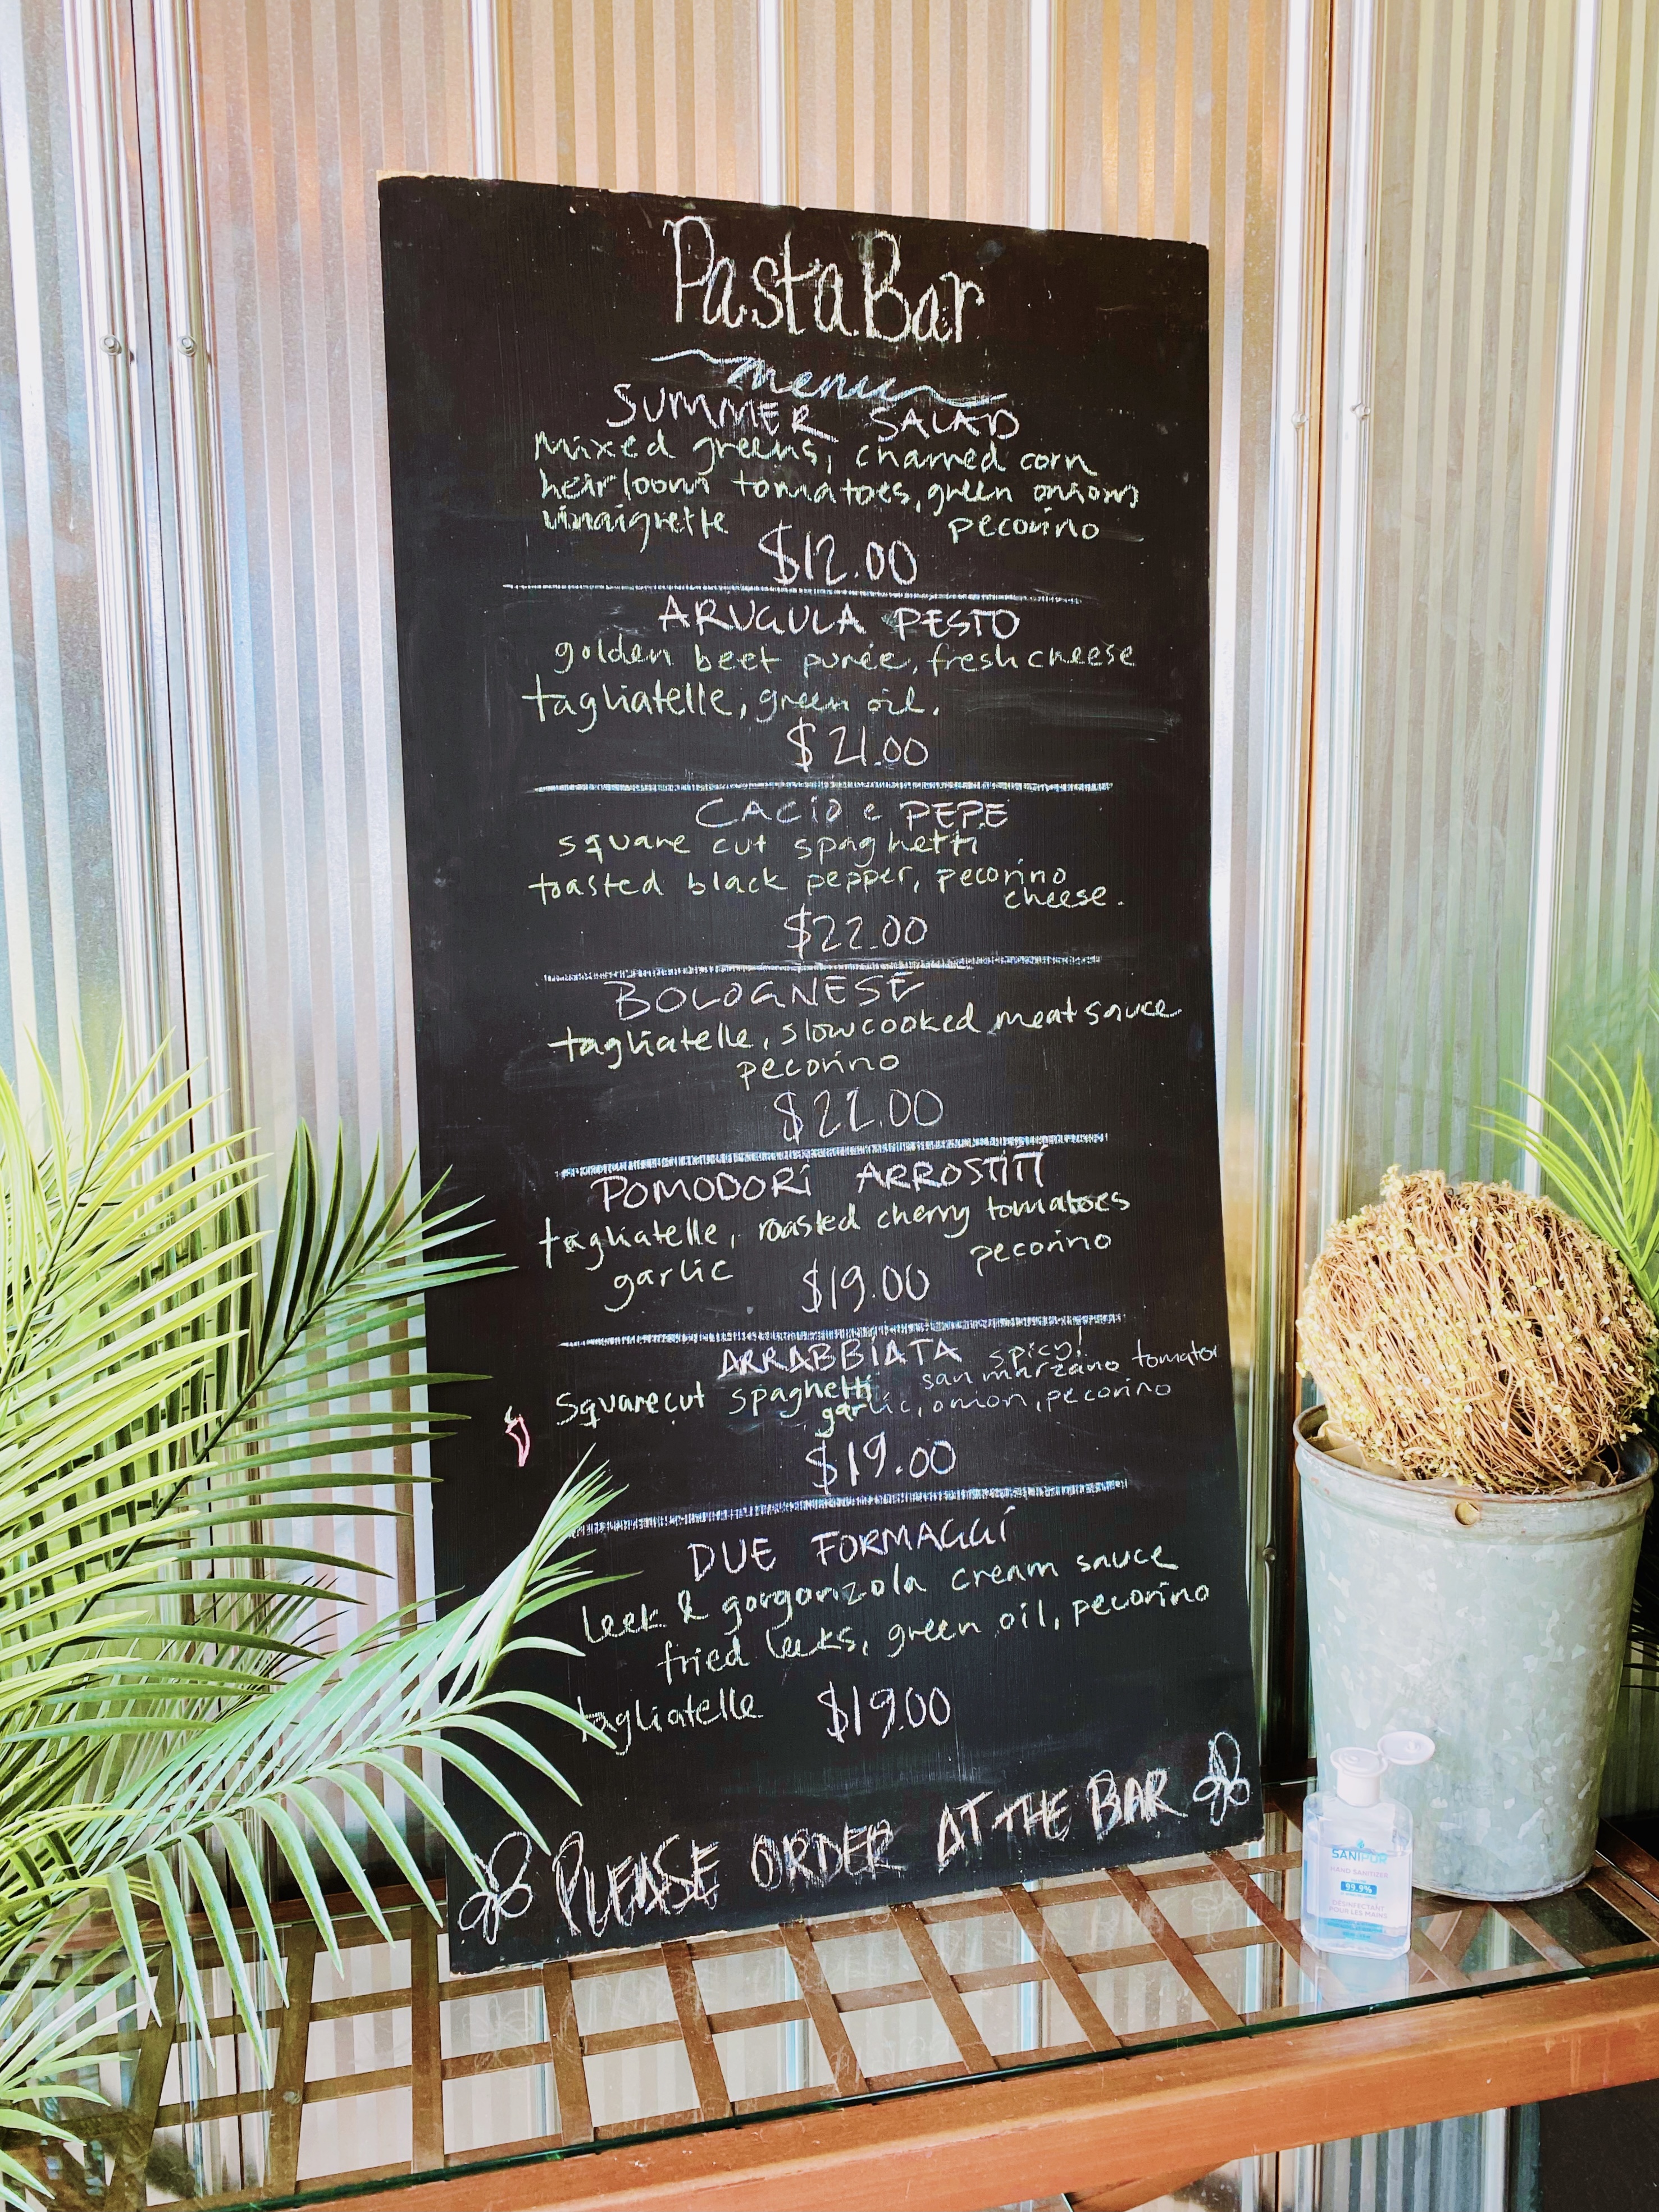 Pasta Bar
menu
SUMMER SALAD
mixed greens, charred corn
heirloom tomatoes, green onions
vinaigrette pecorino
$12.00
ARUGULA PESTO
golden beet purée, fresh cheese
tagliatelle, green oil.
$21.00
CACIO e PEPE
square cut spaghetti
toasted black pepper, pecorino
cheese.
$22.00
BOLOGNESE
tagliatelle, slow cooked meat sauce
pecorino
$22.00
POMODORI ARROSTITI
tagliatelle, roasted cherry tomatoes
garlic pecorino
$19.00
ARRABBIATA spicy!
square cut spaghetti san marzano tomato
garlic, onion, pecorino
$19.00
DUE FORMAGGI
leek & gorgonzola cream sauce
fried leeks, green oil, pecorino
tagliatelle $19.00
PLEASE ORDER AT THE BAR
SANIPUR
HAND SANITIZER
99.9%
DÉSINFECTANT
POUR LES MAINS